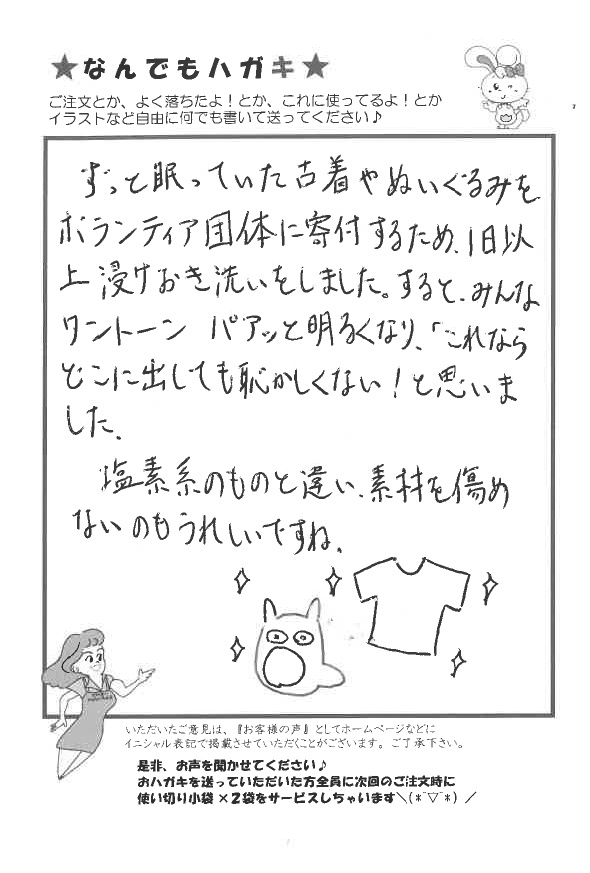 ★なんでもハガキ★
ご注文とか、よく落ちたよ！とか、これに使ってるよ！とか
イラストなど自由に何でも書いて送ってください♪
ずっと眠っていた古着やぬいぐるみを
ボランティア団体に寄付するため、1日以
上浸けおき洗いをしました。すると、みんな
ワントーン パアッと明るくなり、「これなら
どこに出しても恥かしくない！と思いま
した。
塩素系のものと違い、素材を傷め
ないのもうれしいですね。
いただいたご意見は、『お客様の声』としてホームページなどに
イニシャル表記で掲載させていただくことがございます。ご了承下さい。
是非、お声を聞かせてください♪
おハガキを送っていただいた方全員に次回のご注文時に
使い切り小袋×2袋をサービスしちゃいます＼(*¨▽¨*)／